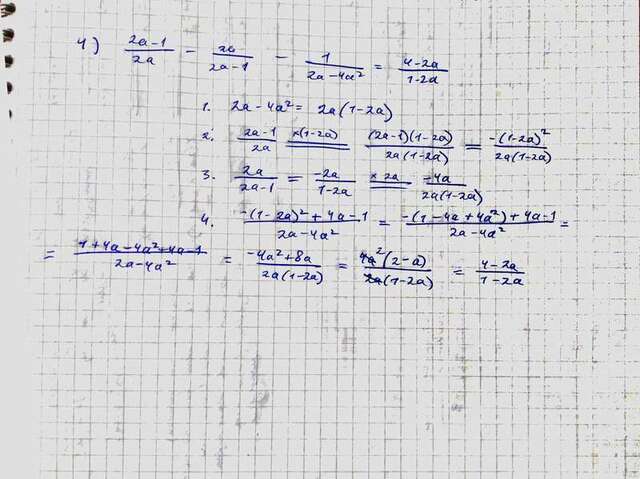 4) \frac{2a-1}{2a} - \frac{2a}{2a-1} - \frac{1}{2a-4a^2} = \frac{4-2a}{1-2a}
1. 2a-4a^2 = 2a(1-2a)
2. \frac{2a-1}{2a} \underline{\underline{×(1-2a)}} \frac{(2a-1)(1-2a)}{2a(1-2a)} = \frac{-(1-2a)^2}{2a(1-2a)}
3. \frac{2a}{2a-1} = \frac{-2a}{1-2a} \underline{\underline{×2a}} \frac{-4a}{2a(1-2a)}
4. \frac{-(1-2a)^2+4a-1}{2a-4a^2} = \frac{-(1-4a+4a^2)+4a-1}{2a-4a^2} =
= \frac{1+4a-4a^2+4a-1}{2a-4a^2} = \frac{-4a^2+8a}{2a(1-2a)} = \frac{4a^2(2-a)}{2a(1-2a)} = \frac{4-2a}{1-2a}